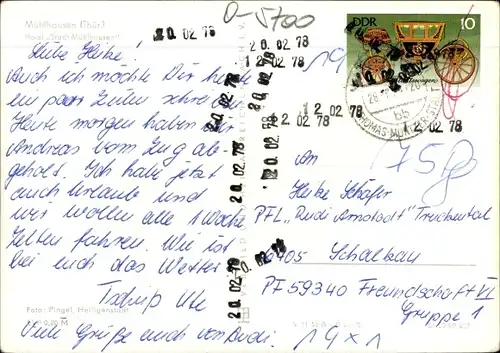 Mühlhausen (Thür.)
Hotel „Stadt Mühlhausen"
Liebe Heike!
Auch ich möchte Dir heute
ein paar Zeilen schreiben.
Heute morgen haben wir
Andreas vom Zug ab-
geholt. Ich hab jetzt
auch Urlaub und
wir wollen alle 1 Woche
Zelten fahren. Wie ist
bei euch das Wetter
Tschüß Ute
Viele Grüße auch von Rudi.
Foto: Pingel, Heiligenstadt
0-5700
20. 02 78
20. 02 78
12. 02 78
12 02 78
12 02 78
20. 02 78
20. 02 78
20. 02 78
20. 02 78
DDR
10
THOMAS-MÜNTZER
bb
19
75
An
Heike Schäfer
PFL „Rudi Arnstadt" Truckental
6405 Schalkau
PF 59340 Freundschaft VI
Gruppe 1
19x1